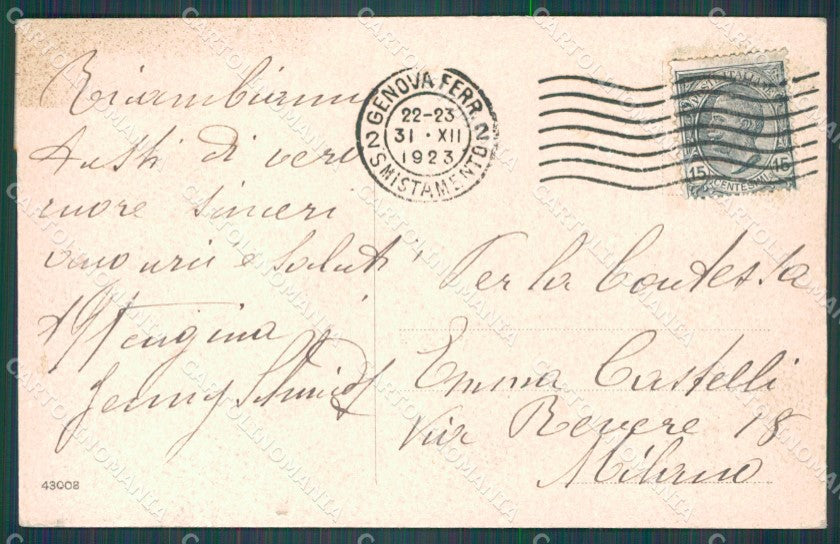 Ricambiamo
tutti di vero
cuore sinceri
auguri e saluti
Jenny Schmidt
GENOVA FERR.
22-23
2 31·XII 2
1923
SMISTAMENTO
15 CENTESIMI 15
Per la Contessa
Emma Castelli
Via Revere 18
Milano
43008
CARTOLINOMANIA